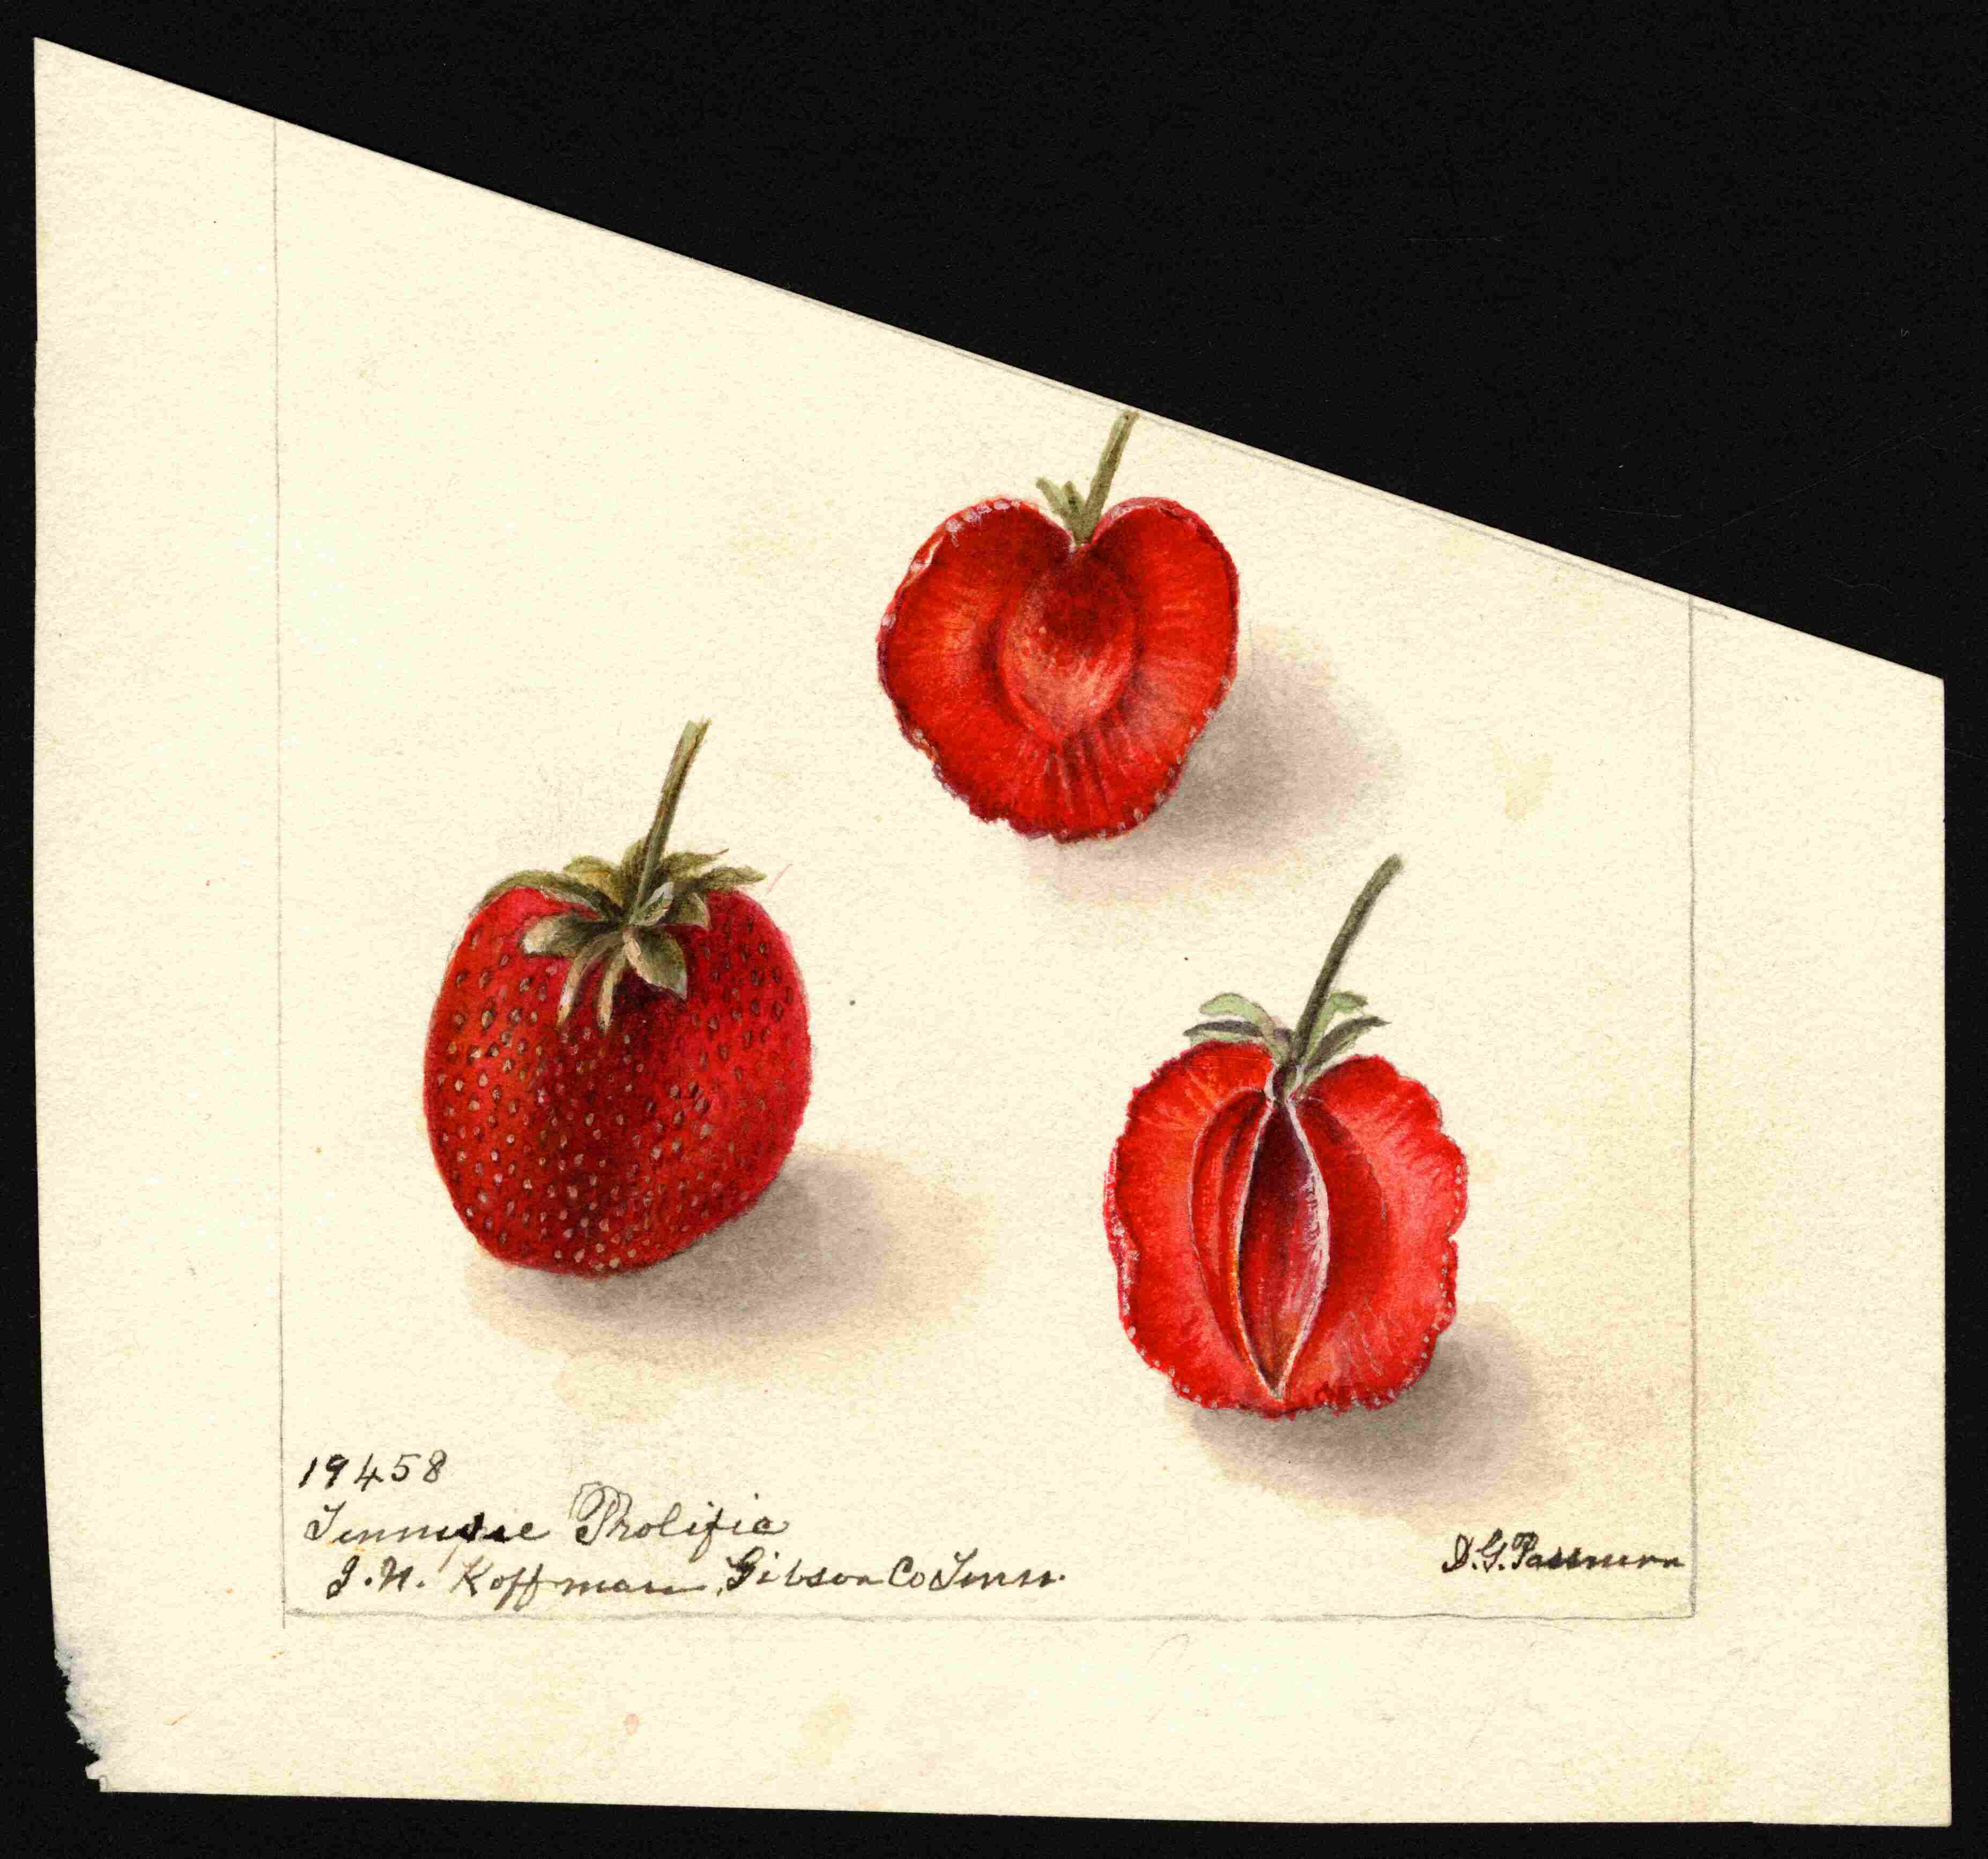 19458
Tennessee Prolific
J.H. Koffman, Gibson Co Tenn.
D.G. Passmore